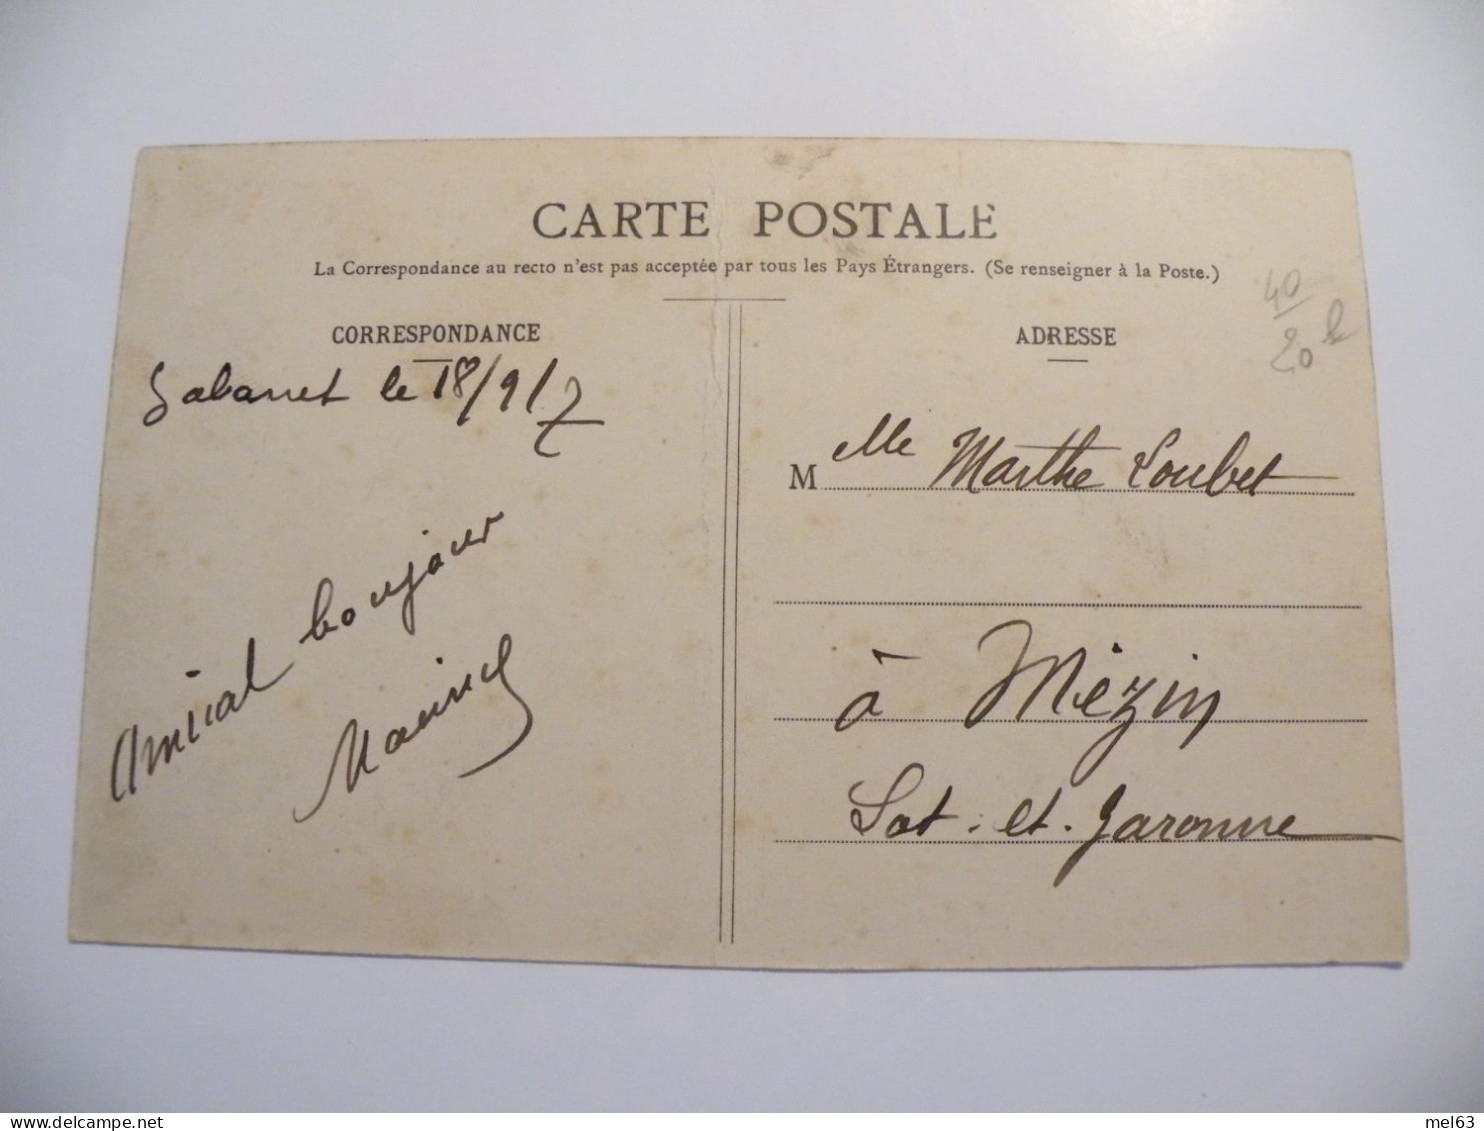 CARTE POSTALE
La Correspondance au recto n'est pas acceptée par tous les Pays Étrangers. (Se renseigner à la Poste.)
CORRESPONDANCE
Gabarret le 18/9/7
Amical bonjour
ADRESSE
40
20
M
elle Marthe Loubet
à Mézin
Lot-et-Garonne
mel63